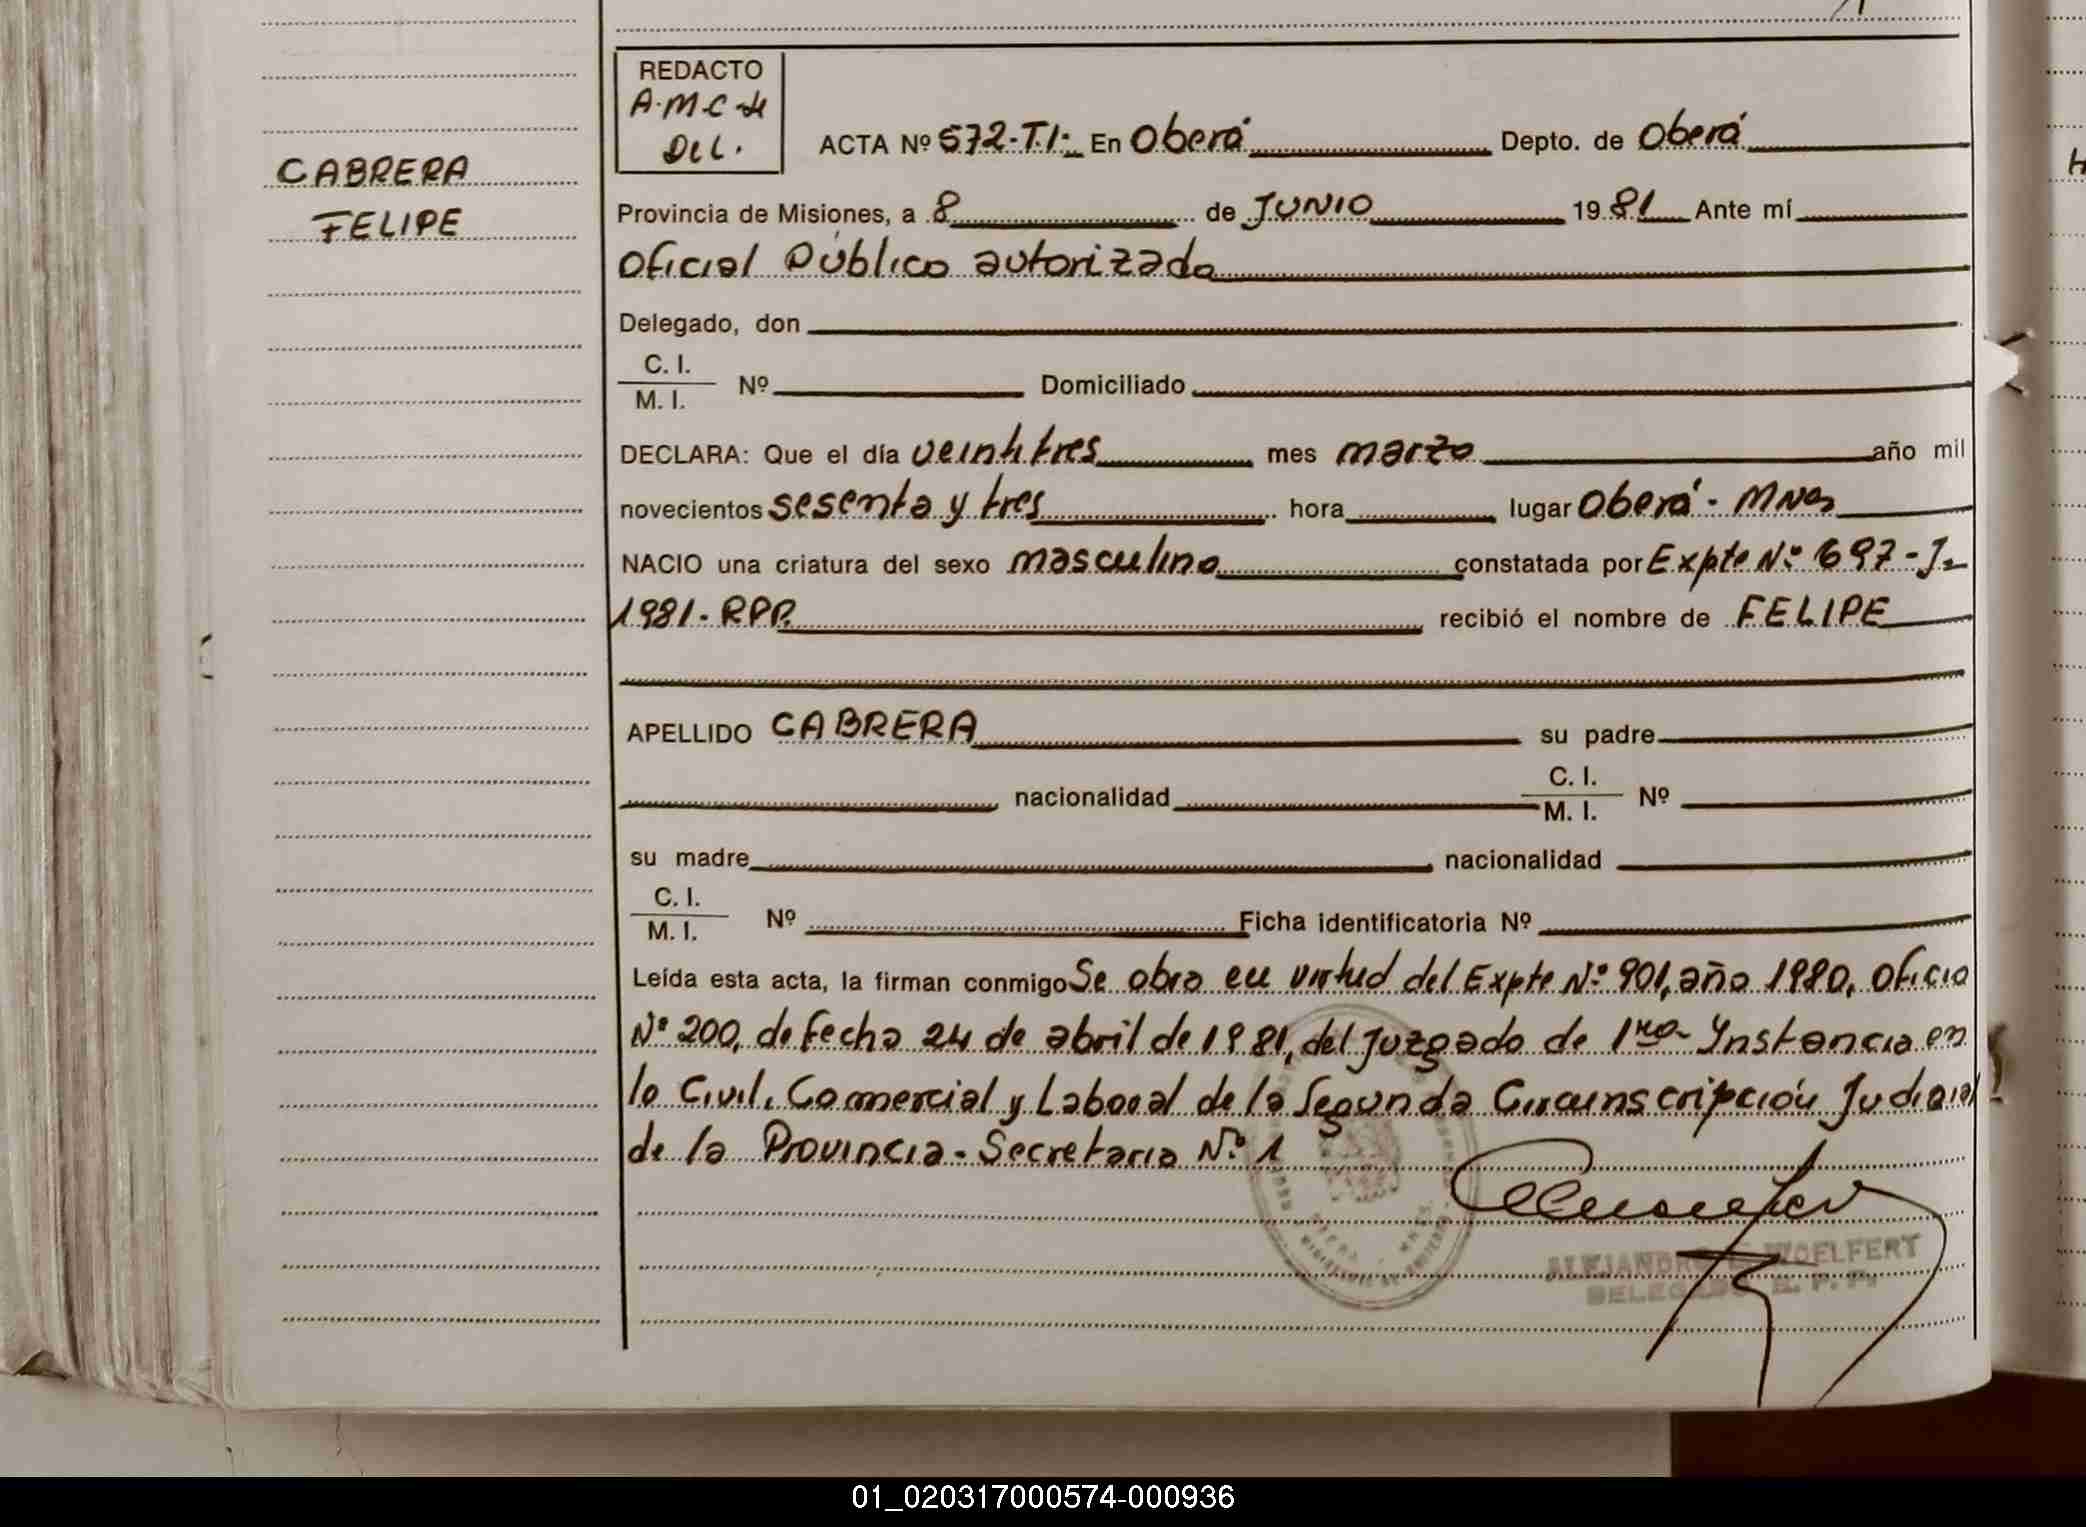 CABRERA
FELIPE
REDACTO
A.M.C.H
DEL.
ACTA Nº 572-T.I- En Oberá Depto. de Oberá
Provincia de Misiones, a 8 de JUNIO 1981 Ante mí
Oficial Público autorizado
Delegado, don
C. I.
M. I. Nº Domiciliado
DECLARA: Que el día veintitres mes marzo año mil
novecientos sesenta y tres hora lugar Oberá - MNes
NACIO una criatura del sexo masculino constatada por Expte Nº 697-J-
1981-RPP. recibió el nombre de FELIPE
APELLIDO CABRERA su padre
nacionalidad C. I. Nº
M. I.
su madre nacionalidad
C. I.
M. I. Nº Ficha identificatoria Nº
Leída esta acta, la firman conmigo Se obra en virtud del Expte Nº 901, año 1980, Oficio
Nº 200, de fecha 24 de abril de 1981, del Juzgado de 1ra Instancia en
lo Civil, Comercial y Laboral de la Segunda Circunscripción Judicial
de la Provincia - Secretaria Nº 1
ALEJANDRO WOELFERT
DELEGADO R. P. P.
01_020317000574-000936